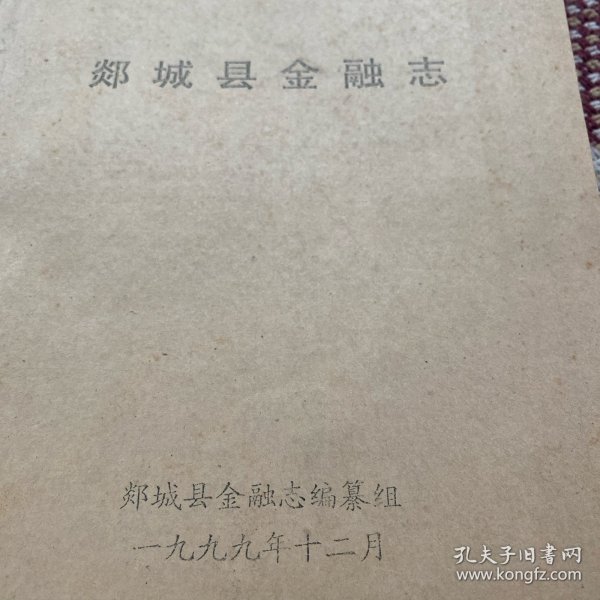 郯城县金融志
郯城县金融志编纂组
一九九九年十二月
孔夫子旧书网
www.kongfz.com